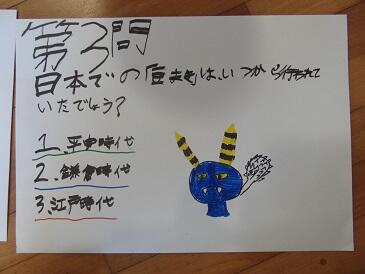 第3問
日本での「豆まき」は、いつから行われて
いたでしょう?
1、平安時代
2、鎌倉時代
3、江戸時代